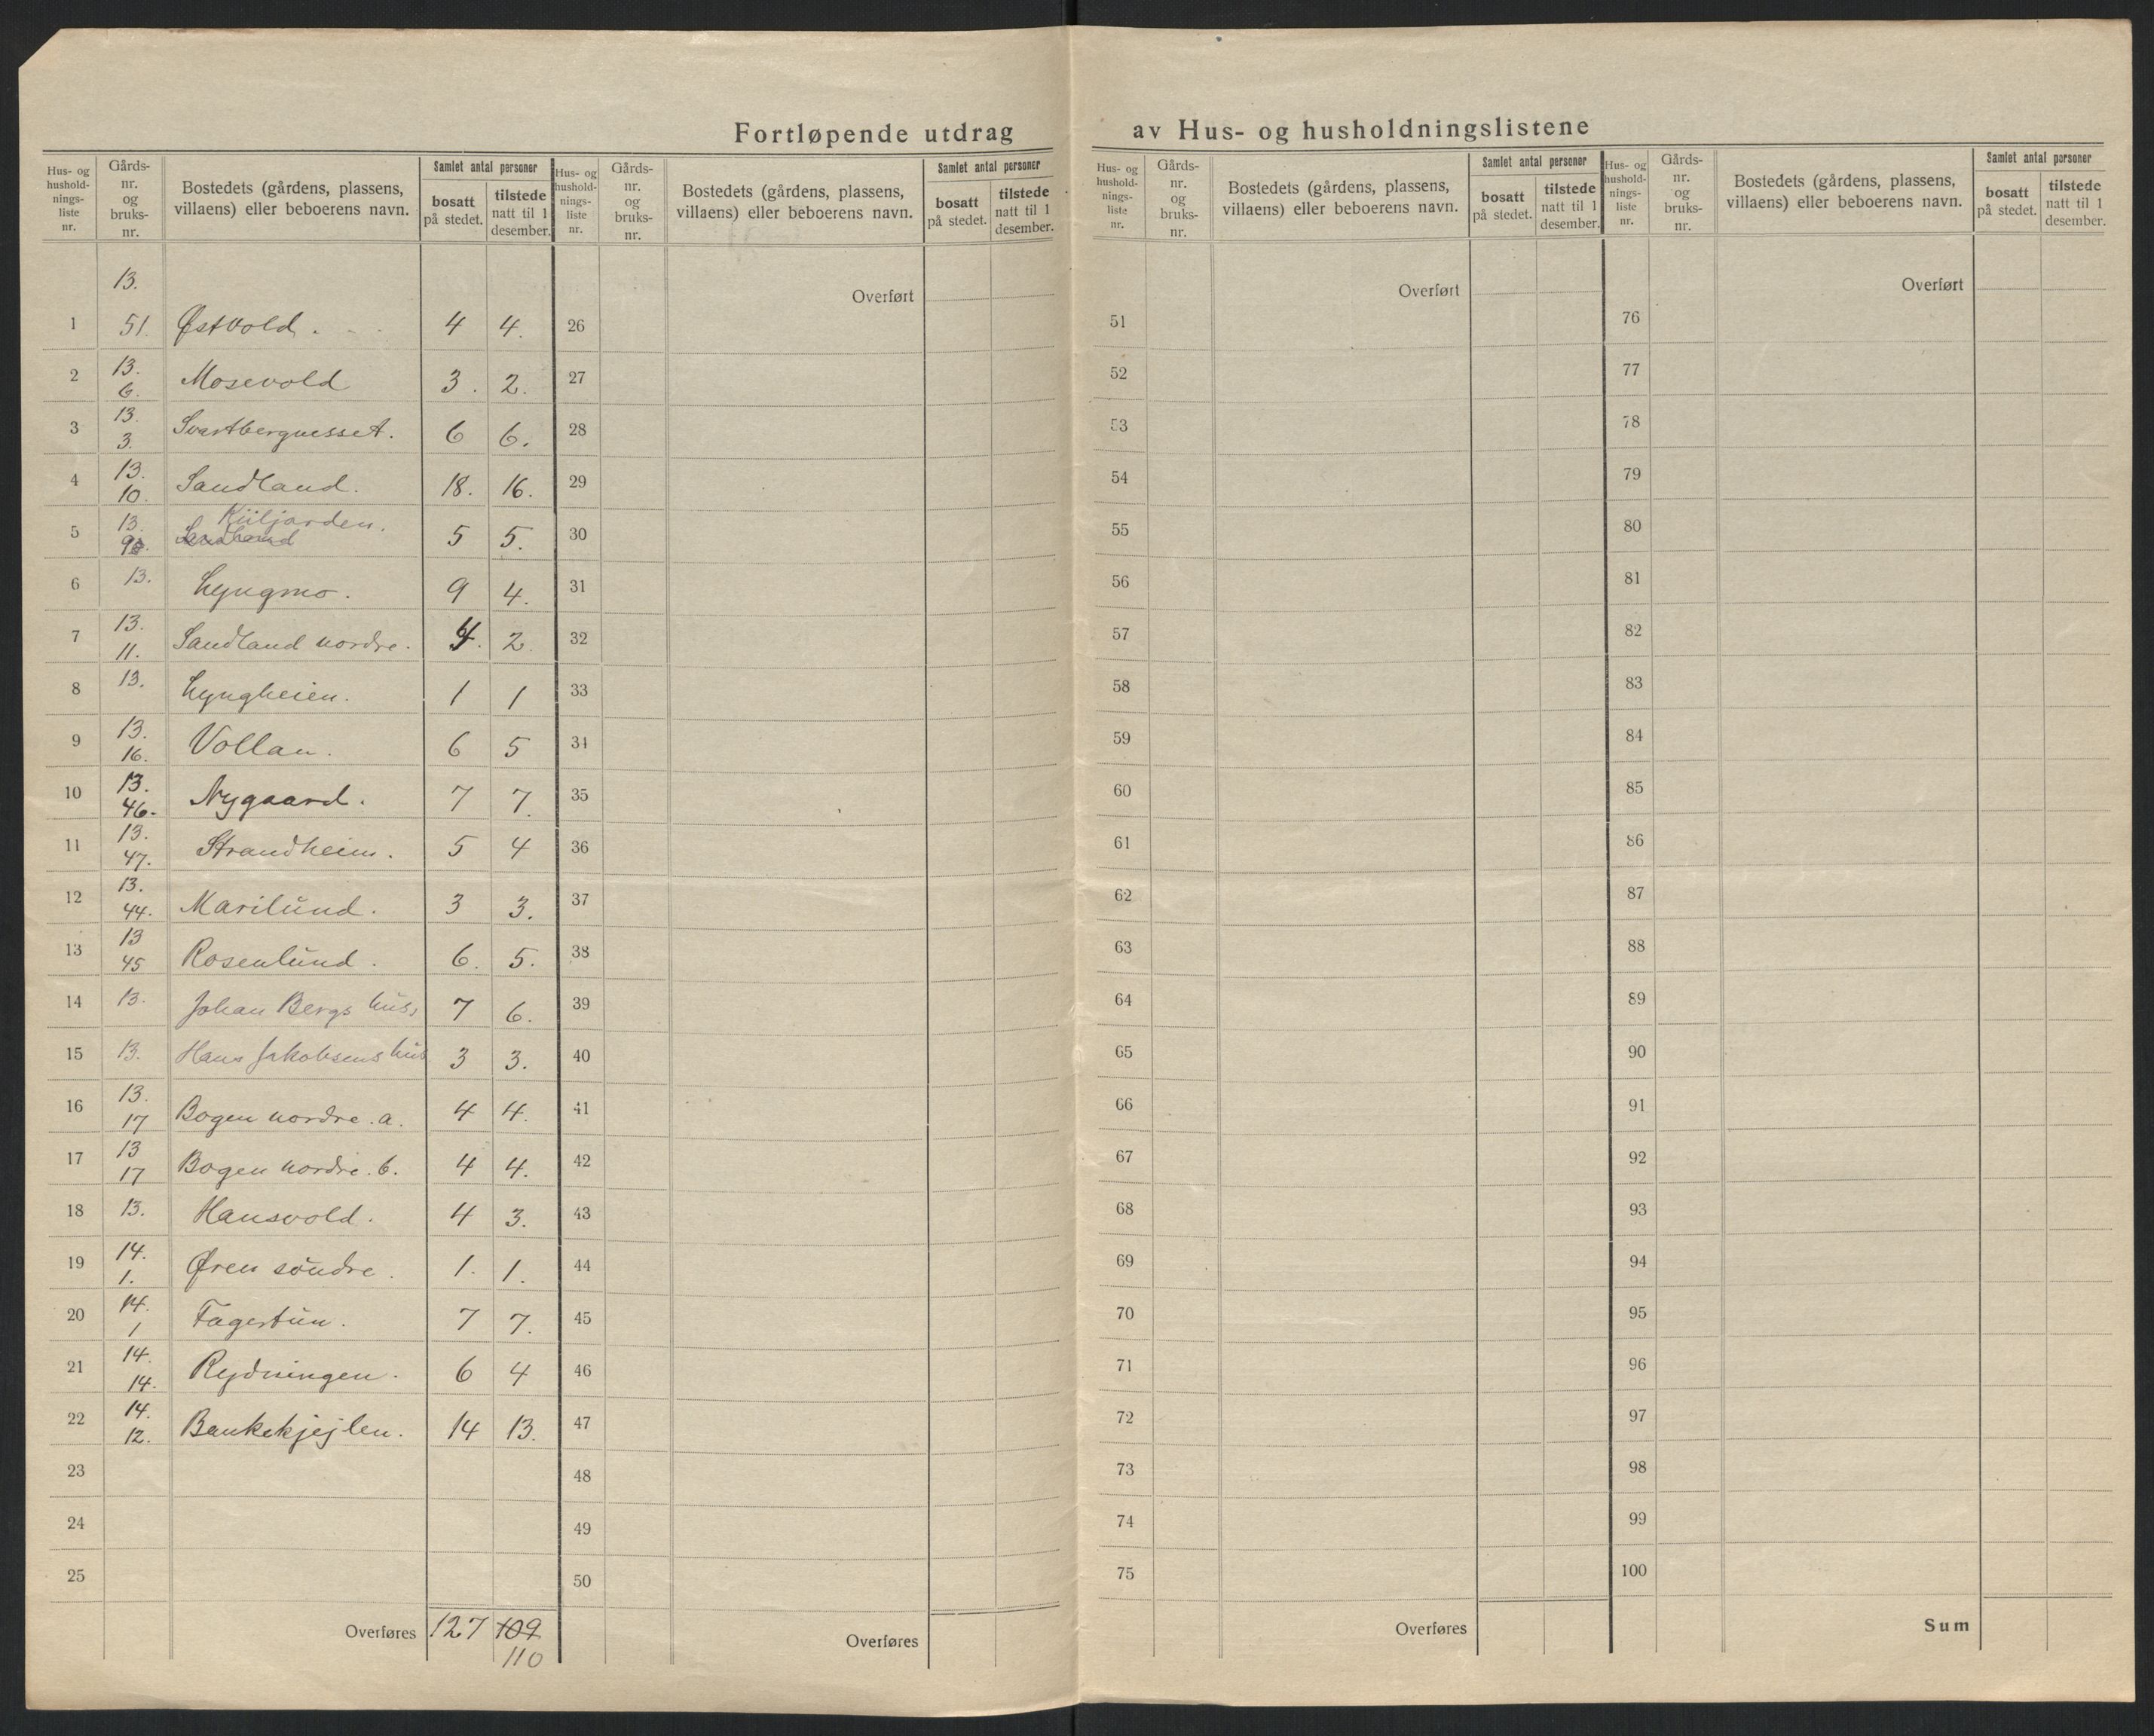 Fortløpende utdrag av Hus- og husholdningslistene
Hus- og husholdnings-liste nr. | Gårds-nr. og bruks-nr. | Bostedets (gårdens, plassens, villaens) eller beboerens navn. | Samlet antal personer | bosatt på stedet. | tilstede natt til 1 desember.
1 | 13. 51. | Østvold. | 4 | 4.
2 | 13. 6. | Mosevold | 3. | 2.
3 | 13. 3. | Svartbergnesset. | 6 | 6.
4 | 13. 10. | Sandland. | 18. | 16.
5 | 13. 9. | Sandland | 5 | 5.
6 | 13. | Lyngmo. | 9 | 4.
7 | 13. 11. | Sandland nordre. | 4. | 2.
8 | 13. | Lyngheien. | 1 | 1
9 | 13. 16. | Vollan. | 6 | 5
10 | 13. 46. | Nygaard. | 7 | 7.
11 | 13. 47. | Strandheim. | 5 | 4
12 | 13. 44. | Marilund. | 3 | 3.
13 | 13 45 | Rosenlund. | 6. | 5.
14 | 13. | Johan Bergs hus, | 7 | 6.
15 | 13. | Hans Jakobsens hus | 3 | 3.
16 | 13. 17 | Bogen nordre. a. | 4 | 4.
17 | 13 17 | Bogen nordre. b. | 4 | 4.
18 | 13. | Hansvold. | 4 | 3.
19 | 14. 1. | Øren söndre. | 1. | 1.
20 | 14. 1 | Fagertun. | 7 | 7.
21 | 14. 14. | Rydningen. | 6 | 4
22 | 14. 12. | Bankekjejlen. | 14 | 13.
23
24
25
Overføres | 127 | 109 110
Hus- og husholdnings-liste nr. | Gårds-nr. og bruks-nr. | Bostedets (gårdens, plassens, villaens) eller beboerens navn. | Samlet antal personer | bosatt på stedet. | tilstede natt til 1 desember.
Overført
26
27
28
29
30
31
32
33
34
35
36
37
38
39
40
41
42
43
44
45
46
47
48
49
50
Overføres
Hus- og husholdnings-liste nr. | Gårds-nr. og bruks-nr. | Bostedets (gårdens, plassens, villaens) eller beboerens navn. | Samlet antal personer | bosatt på stedet. | tilstede natt til 1 desember.
Overført
51
52
53
54
55
56
57
58
59
60
61
62
63
64
65
66
67
68
69
70
71
72
73
74
75
Overføres
Hus- og husholdnings-liste nr. | Gårds-nr. og bruks-nr. | Bostedets (gårdens, plassens, villaens) eller beboerens navn. | Samlet antal personer | bosatt på stedet. | tilstede natt til 1 desember.
Overført
76
77
78
79
80
81
82
83
84
85
86
87
88
89
90
91
92
93
94
95
96
97
98
99
100
Sum